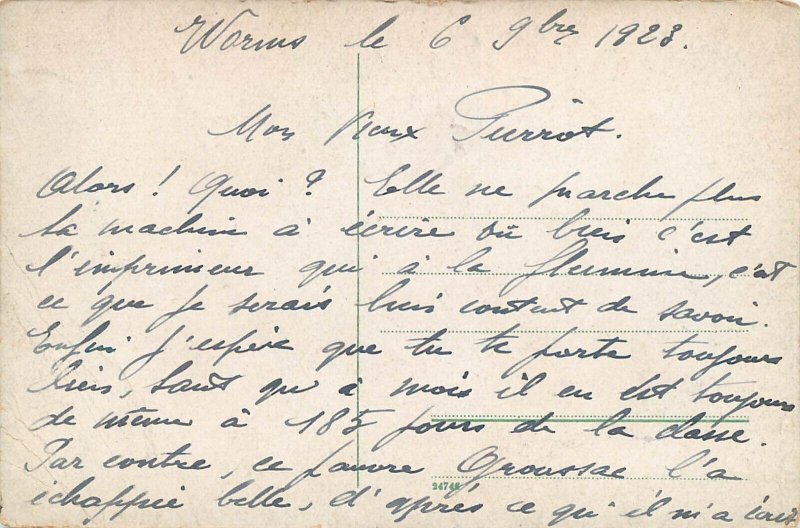 Worms le 6 9bre 1923.
Mon Vieux Pierrot.
Alors ! Quoi ? Elle ne marche plus
ta machine à écrire ou bien c'est
l'imprimeur qui à la flemme, c'est
ce que je serais bien content de savoir.
Enfin j'espère que tu te porte toujours
bien, tant qu'à mois il en est toujours
de même à 185 jours de la classe.
Par contre, ce pauvre Groussac l'a
échappée belle, d'après ce qu'il m'a écrit
24748